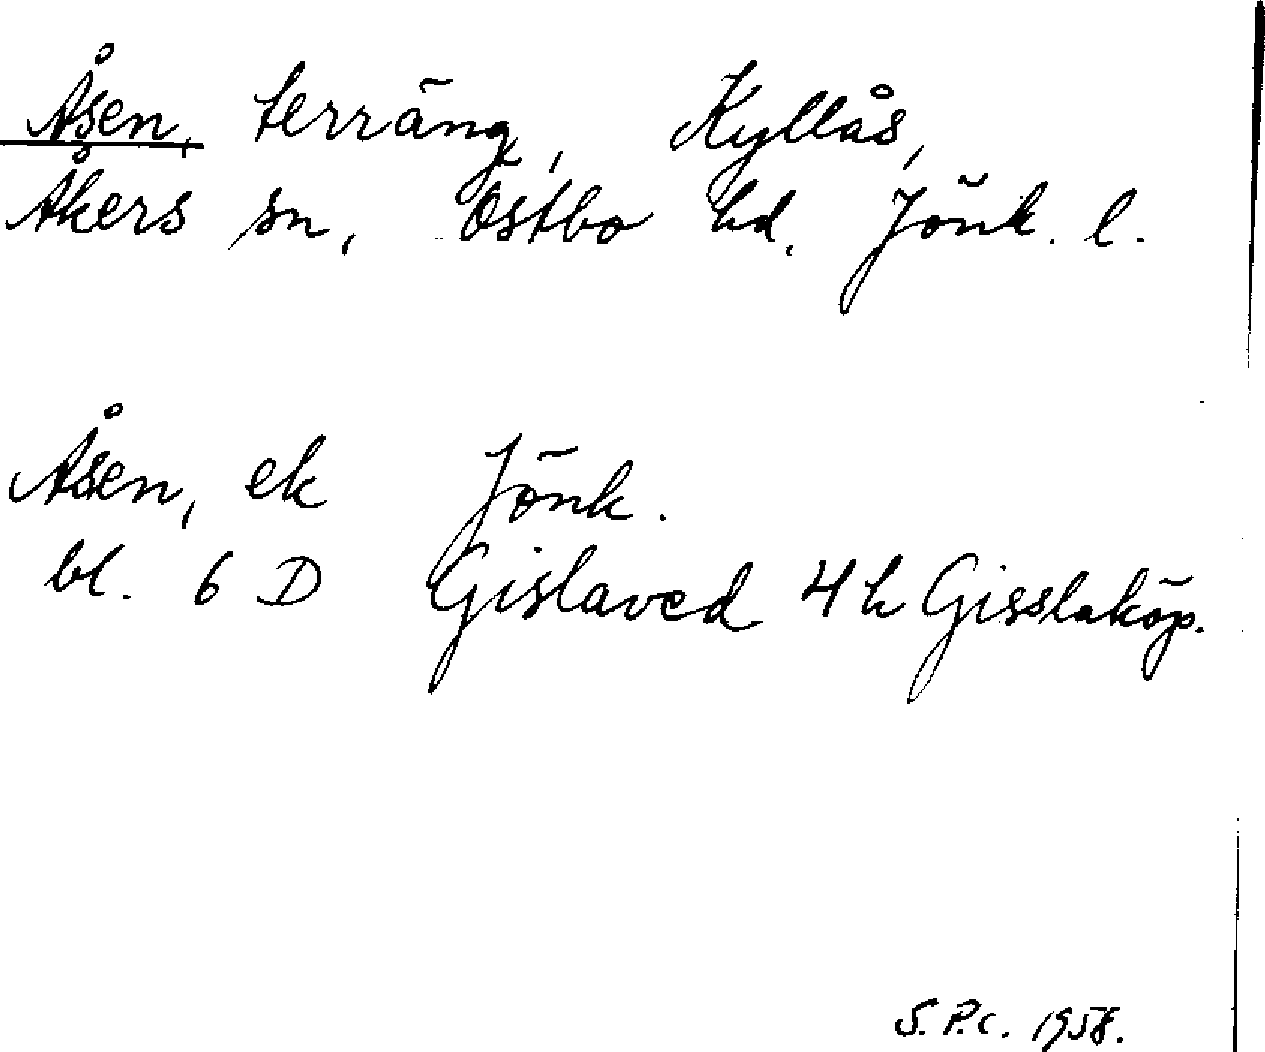 Åsen, terräng, Kyllås,
Åkers sn, Östbo hd, Jönk. l.
Åsen, ek Jönk.
bl. 6 D Gislaved 4 h Gisslaköp.
S.P.C. 1958.